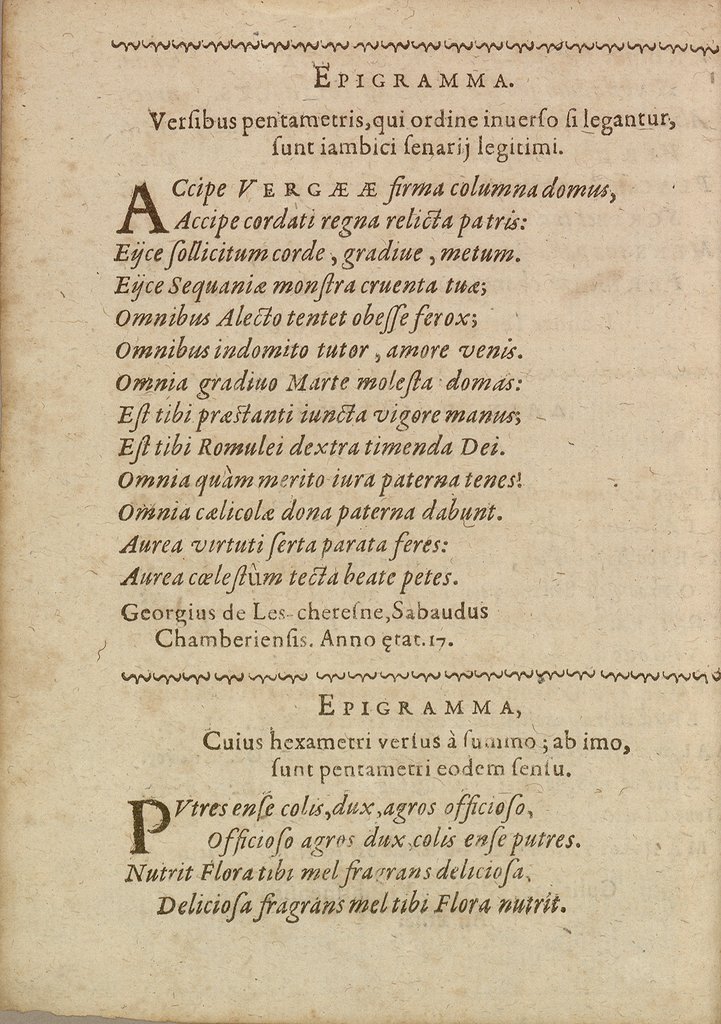 EPIGRAMMA.
Verſibus pentametris, qui ordine inuerſo ſi legantur,
ſunt iambici ſenarij legitimi.
ACcipe VERGÆÆ firma columna domus,
Accipe cordati regna relicta patris:
Eijce ſollicitum corde, gradiue, metum.
Eijce Sequaniæ monſtra cruenta tuæ;
Omnibus Alecto tentet obeſſe ferox;
Omnibus indomito tutor, amore venis.
Omnia gradiuo Marte moleſta domas:
Eſt tibi præſtanti iuncta vigore manus;
Eſt tibi Romulei dextra timenda Dei.
Omnia quàm merito iura paterna tenes!
Omnia cælicolæ dona paterna dabunt.
Aurea virtuti ſerta parata feres:
Aurea cœleſtùm tecta beate petes.
Georgius de Les-chereſne, Sabaudus
Chamberienſis. Anno ętat. 17.
EPIGRAMMA,
Cuius hexametri verſus à ſummo; ab imo,
ſunt pentametri eodem ſenſu.
PVtres enſe colis, dux, agros officioſo,
Officioſo agros dux colis enſe putres.
Nutrit Flora tibi mel fragrans delicioſa,
Delicioſa fragrans mel tibi Flora nutrit.